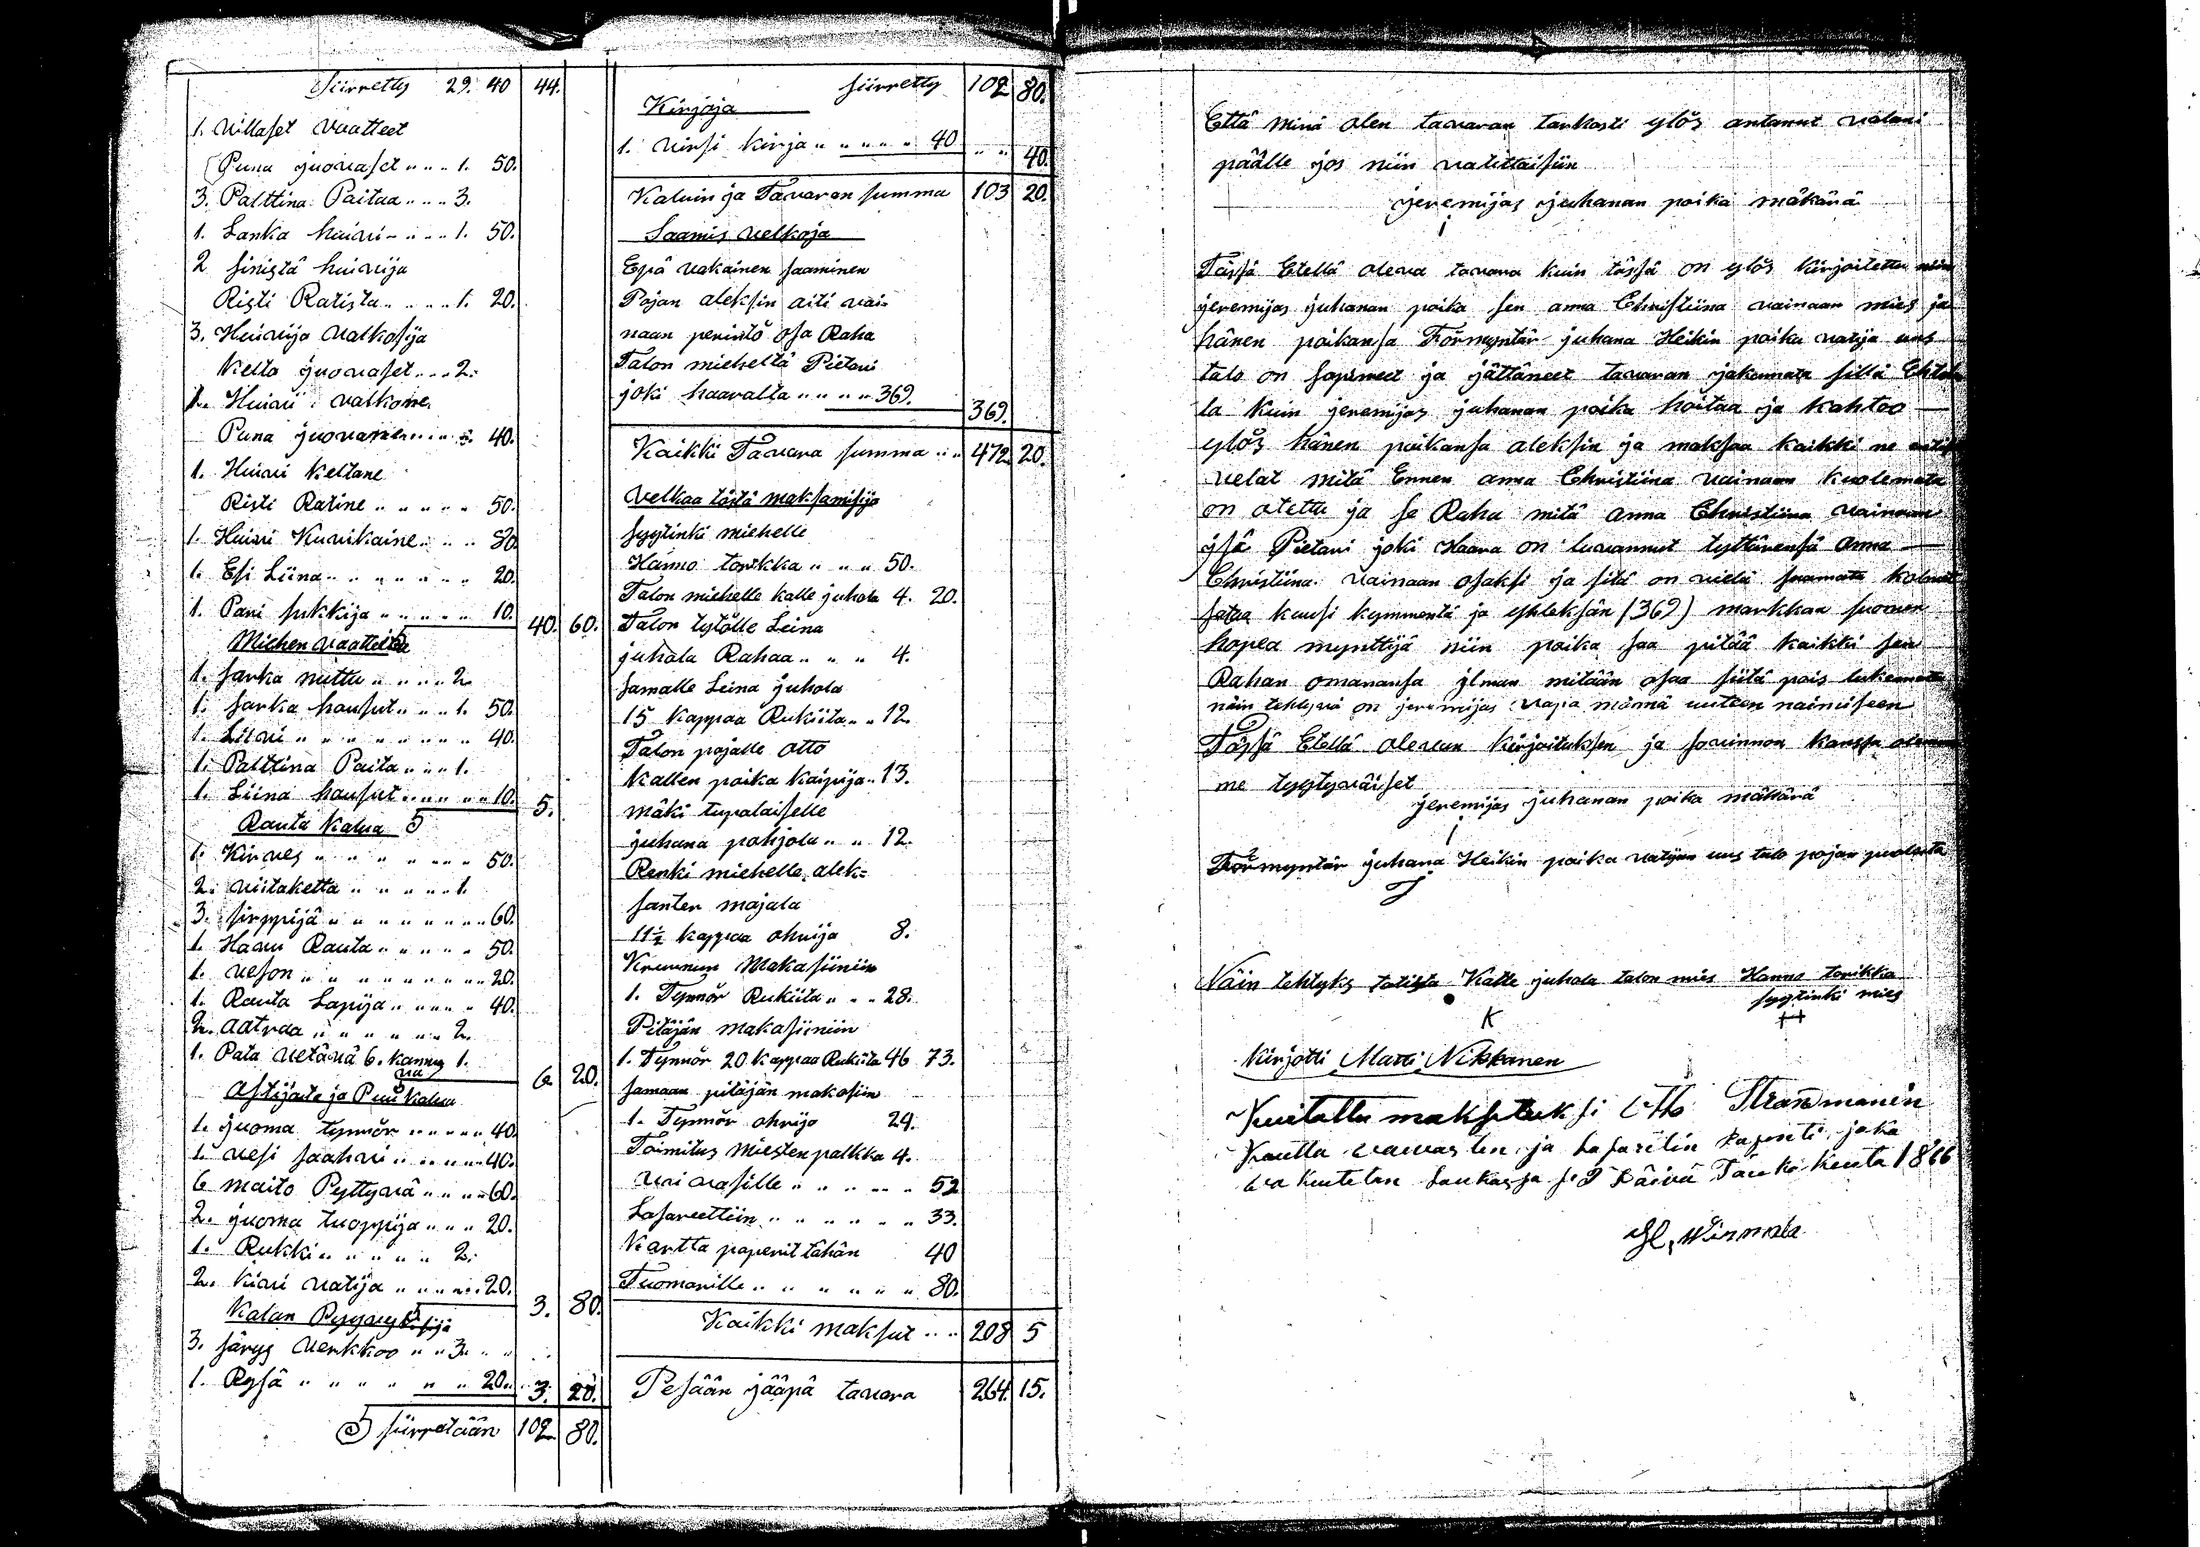 Siirretty 29. 40 44.
1. Villaset vaatteet
Puna juovaset " " " 1. 50.
3. Palttina Paitaa " " " 3.
1. Lanka huivi " " " 1. 50.
2 sinistä huivija
Risti Ratista " " " " 1. 20.
3. Huivija valkosija
Kelta juovaset " " " 2.
1. Huivi valkone
Puna juovanen " " " 40.
1. Huivi keltane
Risti Ratine " " " " " 50.
1. Huivi Kuvikaine " " " 80
1. Esi Liina " " " " " " 20.
1. Pari sukkija " " " " " 10. 40. 60.
Miehen vaatteita
1. sarka nuttu " " " " 2.
1. sarka housut " " " 1. 50.
1. Liivi " " " " " " " 40.
1. Palttina Paita " " " 1.
1. Liina housut " " " " " 10. 5.
Rauta Kalua
1. Kirves " " " " " " " 50.
2. viitaketta " " " " " 1.
3. sirppijä " " " " " " " 60.
1. Haavi Rauta " " " " " 50.
1. veson " " " " " " " " 20.
1. Rauta Lapija " " " " " 40.
2. aatraa " " " " " " 2.
1. Pata vetävä 6. kannua 1. 6 20.
Astijoita ja Puu Kalua
1. juoma tynnör " " " " " 40.
1. vesi saahvi " " " " " 40.
6 maito Pyttyvä " " " " 60.
2. juoma tuoppija " " " 20.
1. Rukki " " " " " 2.
2. kivi vatija " " " " " 20. 3. 80.
Kalan Pyyvyksijä
3. säryg verkkoo " " 3. " "
1. Rysä " " " " " " 20. 3. 20.
siirretään 102. 80.
siirretty 102 80.
Kirjoja
1. virsi kirja " " " " " 40 " " 40.
Kaluin ja Tavaran summa 103 20.
Saamis velkoja
Epä vakainen saaminen
Pojan aleksin äiti vai-
naan perintö osa Raha
Talon mieheltä Pietari
joki haavalta " " " " 369. 369.
Kaikki Tavara summa " " 472. 20.
Velkaa tästä maksamisija
syytinki miehelle
Hanno torikka " " " 50.
Talon miehelle kalle juhola 4. 20.
Talon tytölle Leina
juhola Rahaa " " " 4.
samalle Leina juhola
15 kappaa Rukiita " " 12.
Talon pojalle otto
kallen poika kaipija " 13.
mäki tupalaiselle
juhana pohjola " " 12.
Renki miehelle alek=
santer majala
11½ kappaa ohrija 8.
Kruunun Makasiiniin
1. Tynnör Rukiita " " " 28.
Pitäjän makasiiniin
1. Tynnör 20 kappaa Rukiita 46 73.
samaan pitäjän makasiin
1. Tynnör ohrijo 24.
Toimitus miesten palkka 4.
vaivasille " " " " " 52
Lasareettiin " " " " " " 33.
Kartta paperit tähän 40
Tuomarille " " " " " " " 80.
Kaikki maksut " " " 208 5
Pesään jääpä tavara 264. 15.
Että minä olen tavaran tarkasti ylös antanut valani
päälle jos niin vaadittaisiin
jeremijas juhanan poika mäkärä
Tässä Etellä oleva tavara kuin tässä on ylös kirjoitettu niin
jeremijas juhanan poika sen anna Christiina vainaan mies ja
hänen poikansa Förmyntär juhana Heikin poika vatija uus
talo on sopineet ja jättäneet tavaran jakamata sillä Ehtol
la kuin jeremijas juhanan poika hoitaa ja kahtoo
ylös hänen poikansa aleksin ja maksaa kaikki ne
velat mitä Ennen anna Christiina vainaan kuolemata
on otettu ja se Raha mitä anna Christiina vainaan
isä Pietari joki Haara on luvannut tyttärensä anna
Christiina vainaan osaksi ja sitä on vielä saamata kolmet
sataa kuusi kymmentä ja yheksän (369) markkaa suomen
hopea mynttijä niin poika saa pitää kaikki sen
Rahan omanansa ilman mitään osaa siitä pois lukemata
näin tehtynä on jeremijas vapa männä uuteen naimiseen
Tässä Etellä olevan kirjoituksen ja sovinnon kanssa olemma
me tyytyväiset
jeremijas juhanan poika mäkärä
Förmyntär juhana Heikin poika vatijan uus talo pojan puolesta
Näin tehtyks totista Kalle juhola talon mies Hanno torikka
syytinki mies
K ++
Kirjotti Matti Nikkanen
Kuitattu maksetuksi Otto Strandmanin
Kautta vaivasten ja Lasaretin paperiti joka
Laukassa päivä Touko kuuta 1866